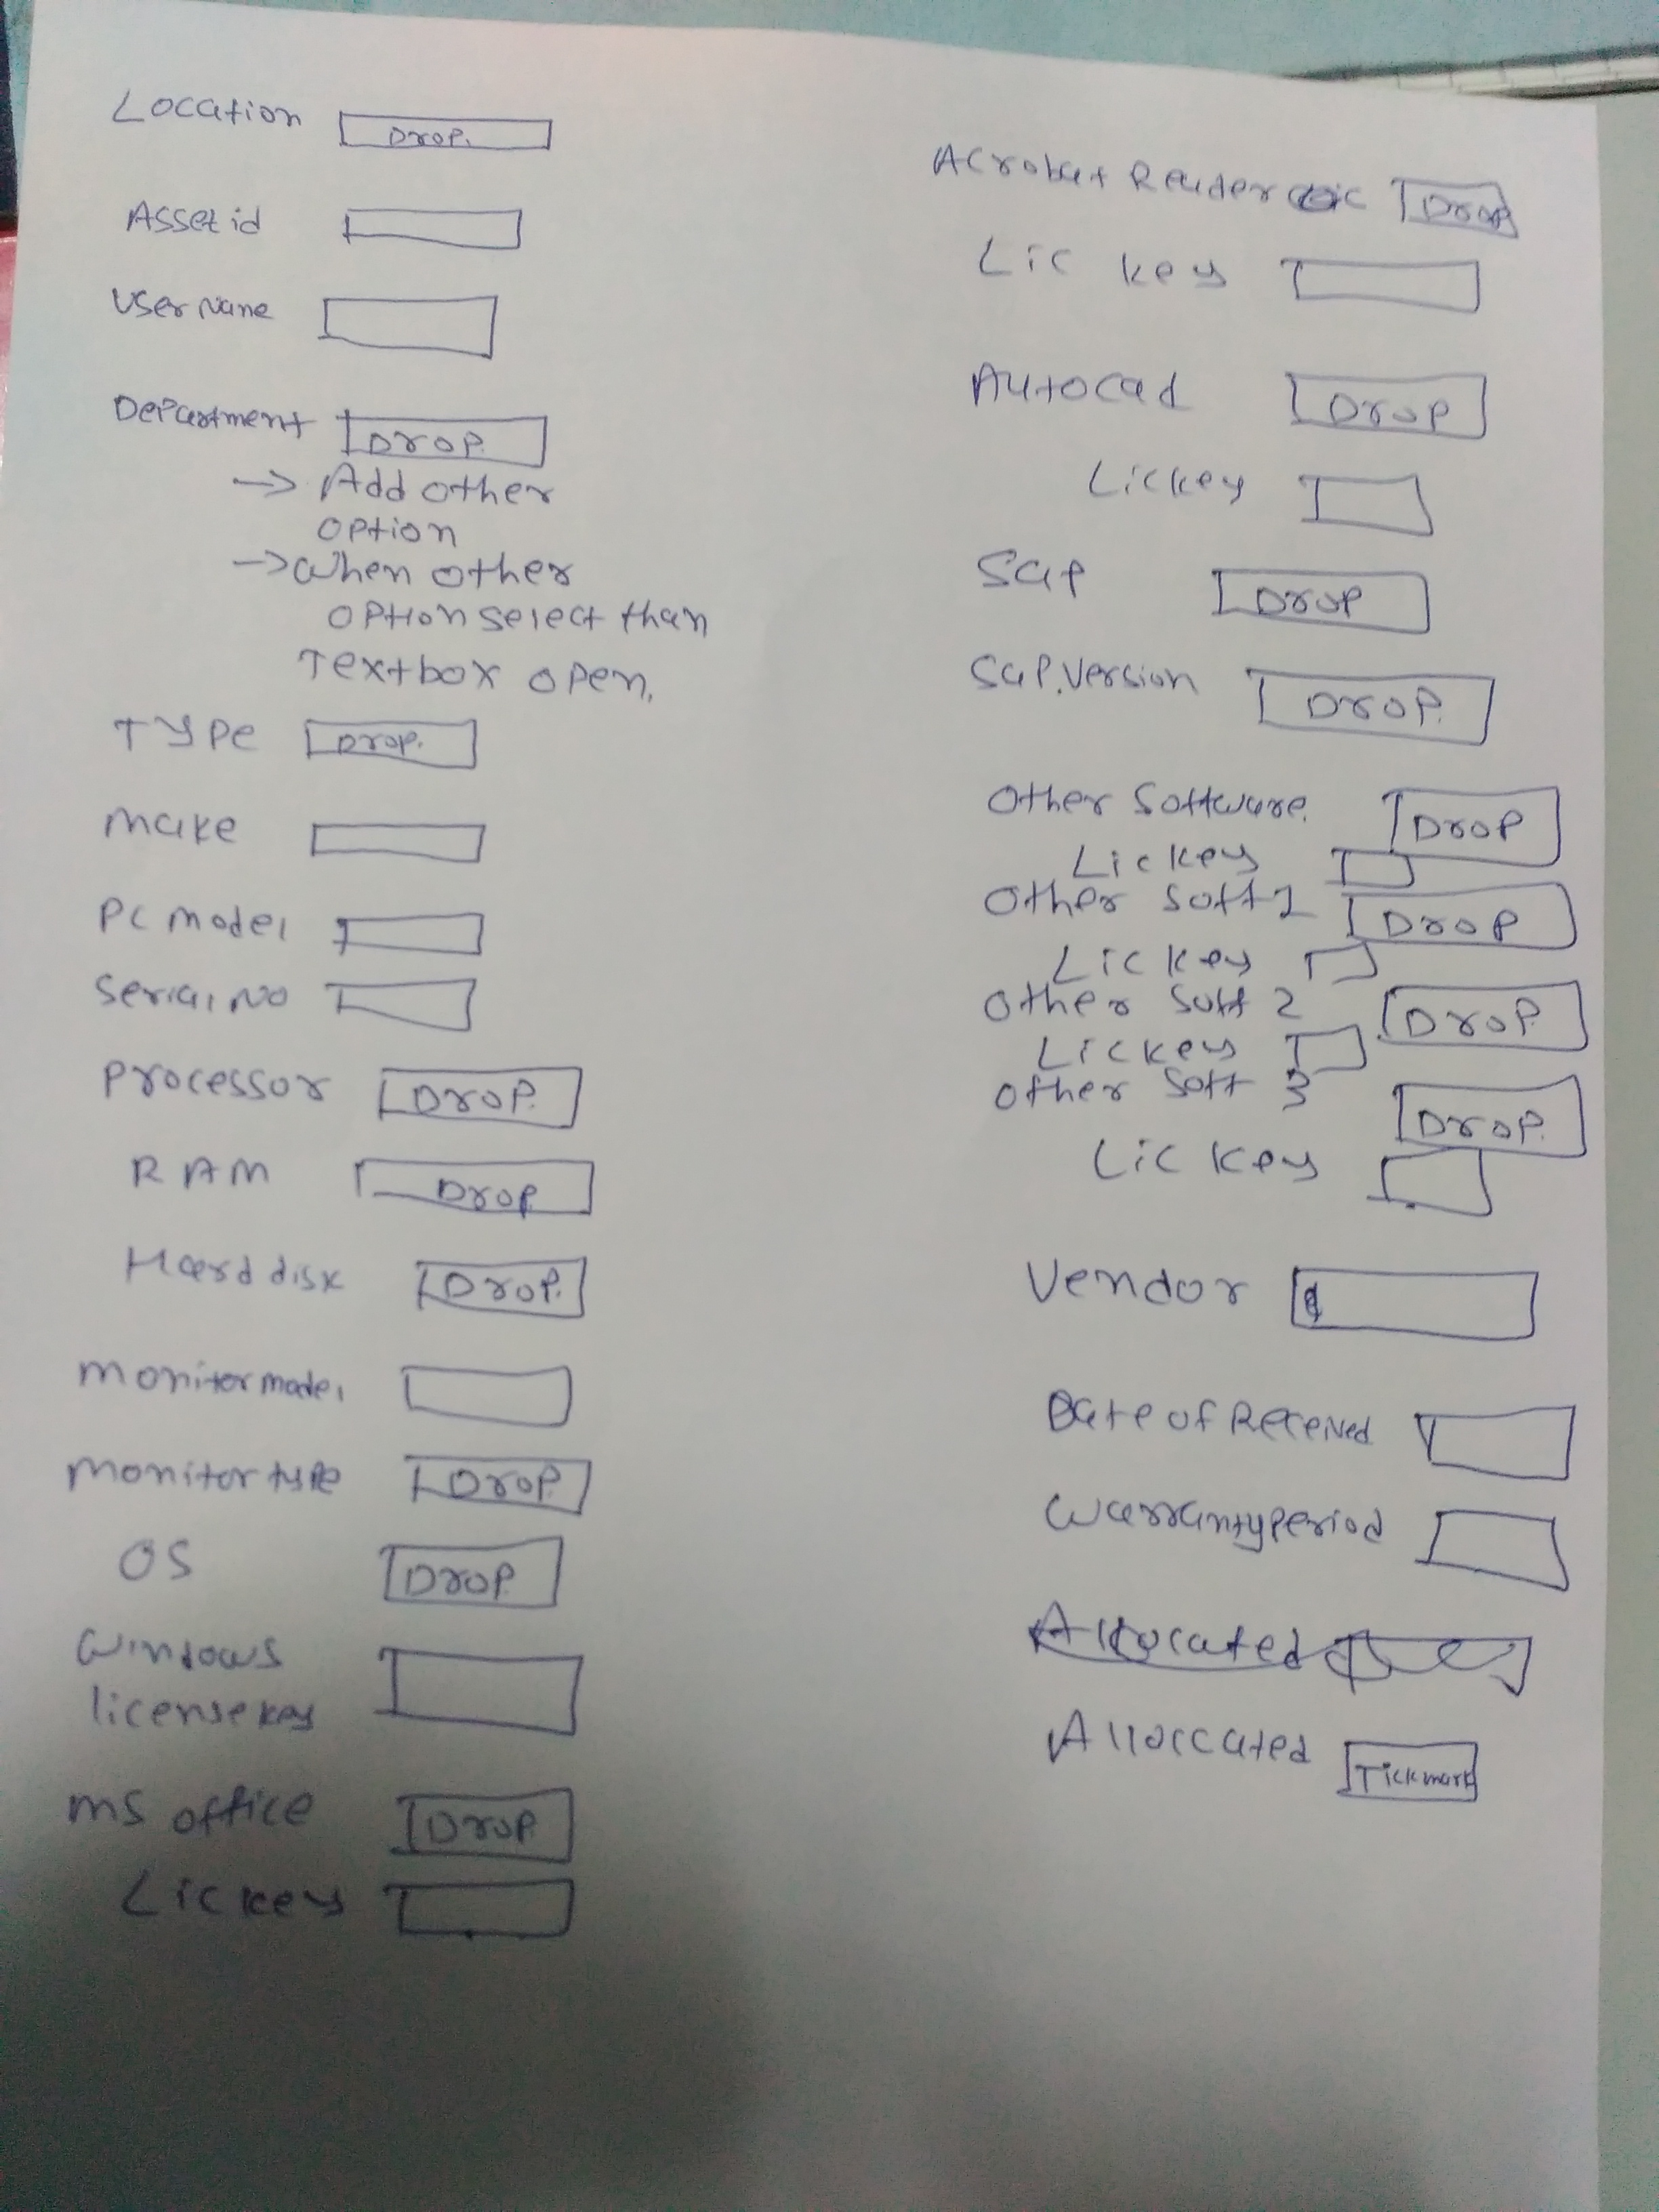 Location Drop.
Asset id
User Name
Department Drop.
-> Add other
option
-> when other
option select than
Textbox open.
Type Drop.
make
PC model
Serial No
Processor Drop.
RAM Drop
Hard disk Drop.
monitor model
monitor type Drop.
OS Drop.
Windows
license key
MS office Drop
Lic key
Acrobat Reader Drop
Lic key
Autocad Drop
Lic key
Sap Drop
Sap. Version Drop.
Other Software. Drop
Lic key
Other Soft 1 Drop
Lic key
Other Soft 2 Drop.
Lic key
Other Soft 3 Drop.
Lic key
Vendor
Date of Received
Warranty Period
Allocated
Alloccated Tickmark